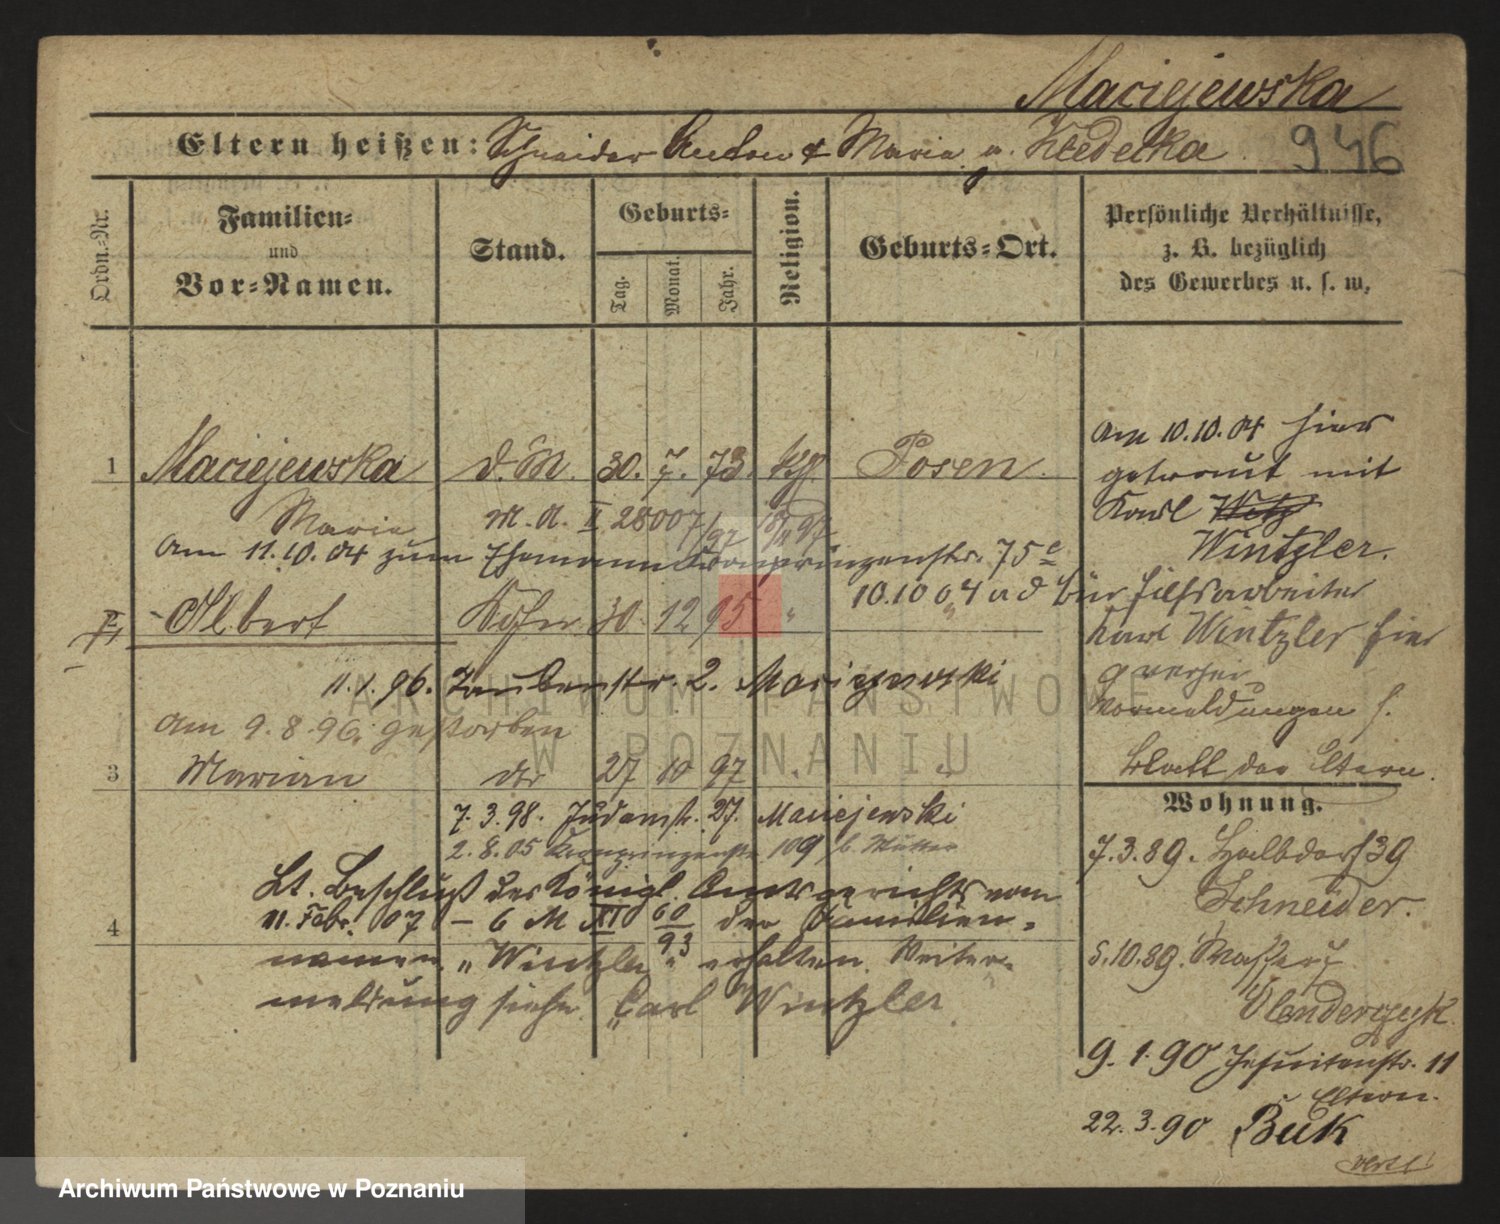 Maciejewska
Eltern heißen: Schneider Anton & Maria
946
Ordn.-Nr.
Familien-
und
Vor-Namen.
Stand.
Geburts-
Tag.
Monat.
Jahr.
Religion.
Geburts-Ort.
Persönliche Verhältnisse,
z. B. bezüglich
des Gewerbes u. s. w.
1 Maciejewska d. M. 30. 7. 73. Posen
Maria
M. A. II 28007/97
am 11.10.04 zum Ehemann Kronprinzenstr. 75e
2 Albert Sohn 30. 12 95 " "
11.1.96. Taubenstr. 2. Maciejewski
am 9.8.96. gestorben
3 Marian 27 10 97 " "
7.3.98. Judenstr. 27. Maciejewski
2.8.05 Kronprinzenstr. 109 b. Mutter
4
Lt. Beschluß des Königl. Amtsgerichts vom
11. Febr. 07 – 6 M XI 60/93 den Familien-
namen "Wintzler" erhalten. Weiter-
meldung siehe "Carl Wintzler"
am 10.10.04 hier
getraut mit
Karl Wetz
Wintzler.
10.10 04 a d Bür Hilfsarbeiter
Karl Wintzler hier
Vormeldungen s.
Blatt der Eltern.
Wohnung.
7.3.89. Halbdorf 39
Schneider.
5.10.89.
9.1.90 Jesuitenstr. 11
Eltern.
22.3.90 Buk
ARCHIWUM PAŃSTWOWE
W POZNANIU
Archiwum Państwowe w Poznaniu